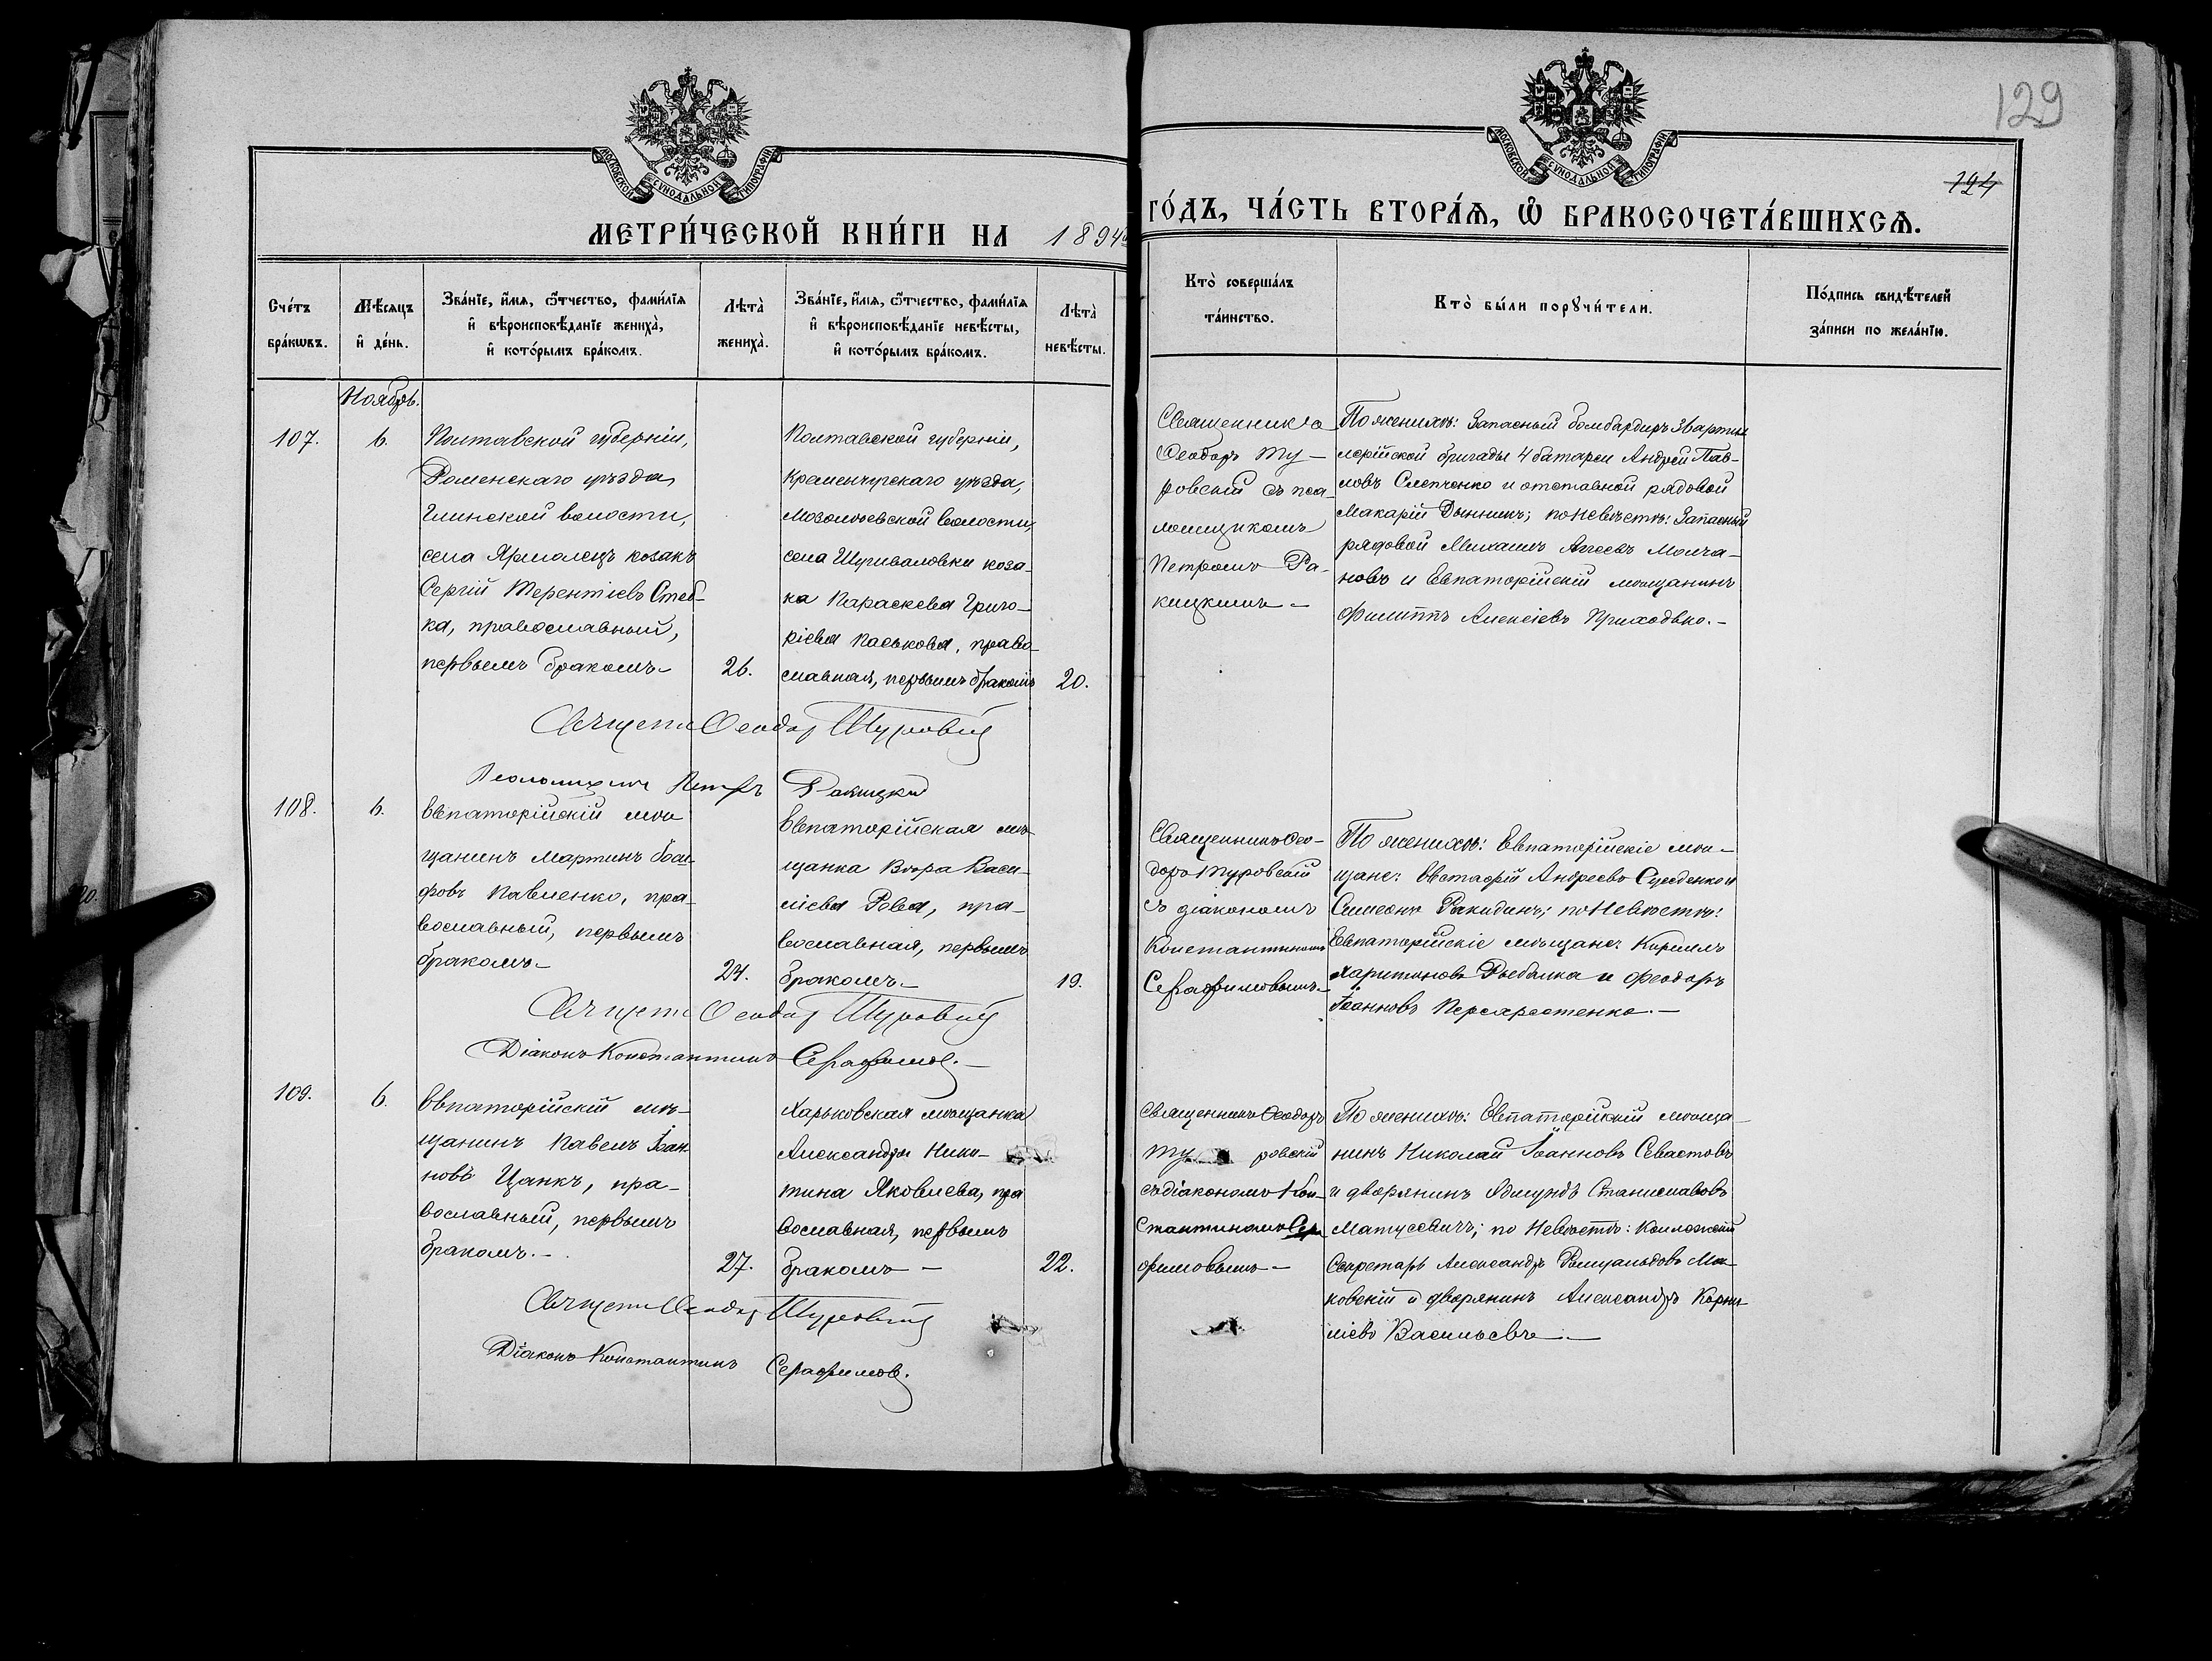 129
124
МОСКОВСКОЙ СѴНОДАЛЬНОЙ ТИПОГРАФІИ
МОСКОВСКОЙ СѴНОДАЛЬНОЙ ТИПОГРАФІИ
МЕТРИ́ЧЕСКОЙ КНИ́ГИ НА 1894й
ГО́ДЪ, ЧА́СТЬ ВТОРА́Ѧ, Ѡ҆ БРАКОСОЧЕТА́ВШИХСѦ.
Сче́тъ
бра́кѡвъ.
Мѣ́сяцъ
и҆ де́нь.
Зва́нїе, и҆́мя, ѻ҆́тчество, фами́лїя
и҆ вѣроисповѣ́данїе жениха̀,
и҆ кото́рымъ бра́комъ.
Лѣта̀
жениха̀.
Зва́нїе, и҆́мя, ѻ҆́тчество, фами́лїя
и҆ вѣроисповѣ́данїе невѣ́сты,
и҆ кото́рымъ бра́комъ.
Лѣта̀
невѣ́сты.
Кто̀ соверша́лъ
та́инство.
Кто̀ бы́ли порꙋчи́тели.
По́дпись свидѣ́телей
за́писи по жела́нїю.
Ноябрь.
107.
6.
Полтавской губерніи,
Роменскаго уѣзда,
Глинской волости,
села Ярмалецъ козакъ
Сергій Терентіевъ Стеб-
ка, православный,
первымъ бракомъ
26.
Полтавской губерніи,
Кременчугскаго уѣзда,
волости,
села коза-
ка Параскева Григо-
ріева Паськова, право-
славная, первымъ бракомъ
20.
Священникъ
Ѳеодоръ Ту-
ровскій съ пса-
ломщикомъ
Петромъ Ра-
кицкимъ –
По женихѣ: Запасный бомбардиръ 3й арти-
лерійской бригады 4 батареи Андрей Пав-
ловъ Слепченко и отставной рядовой
Макарій Дынникъ; по невѣстѣ: Запасный
рядовой Михаилъ Агеевъ Молча-
новъ и Евпаторійскій мѣщанинъ
Филиппъ Алексіевъ Приходько. –
Священ. Ѳеодоръ Туровскій
Псаломщикъ Петръ Ракицкій
108.
6.
Евпаторійскій мѣ-
щанинъ Мартинъ Іоси-
фовъ Павленко, пра-
вославный, первымъ
бракомъ –
24.
Евпаторійская мѣ-
щанка Вѣра Васи-
ліева Рова, пра-
вославная, первымъ
бракомъ –
19.
Священникъ Ѳео-
доръ Туровскій
съ діакономъ
Константиномъ
Серафимовымъ –
По женихѣ: Евпаторійскіе мѣ-
щане: Евстафій Андреевъ и
Симеонъ Ракидинъ; по невѣстѣ:
Евпаторійскіе мѣщане: Кириллъ
Харитоновъ Рыбалка и Феодоръ
Іоанновъ –
Священ. Ѳеодоръ Туровскій
Діаконъ Константинъ Серафимов. –
109.
6.
Евпаторійскій мѣ-
щанинъ Павелъ Іоан-
новъ Цанкъ, пра-
вославный, первымъ
бракомъ. –
27.
Харьковская мѣщанка
Александра Ники-
тина Яковлева, пра
вославная, первымъ
бракомъ –
22.
Священникъ Ѳеодоръ
Ту ровскій
съ діакономъ Кон-
стантиномъ Сера
фимовымъ –
По женихѣ: Евпаторійскій мѣща-
нинъ Николай Іоанновъ Севастовъ
и дворянинъ Эдмундъ Станиславовъ
Матусевичъ; по Невѣстѣ: Коллежскій
Секретарь Александръ Ромуальдовъ Ма-
ковскій и дворянинъ Александръ Корни-
ліевъ Васильевъ –
Священ. Ѳеодоръ Туровскій
Діаконъ Константинъ Серафимов.